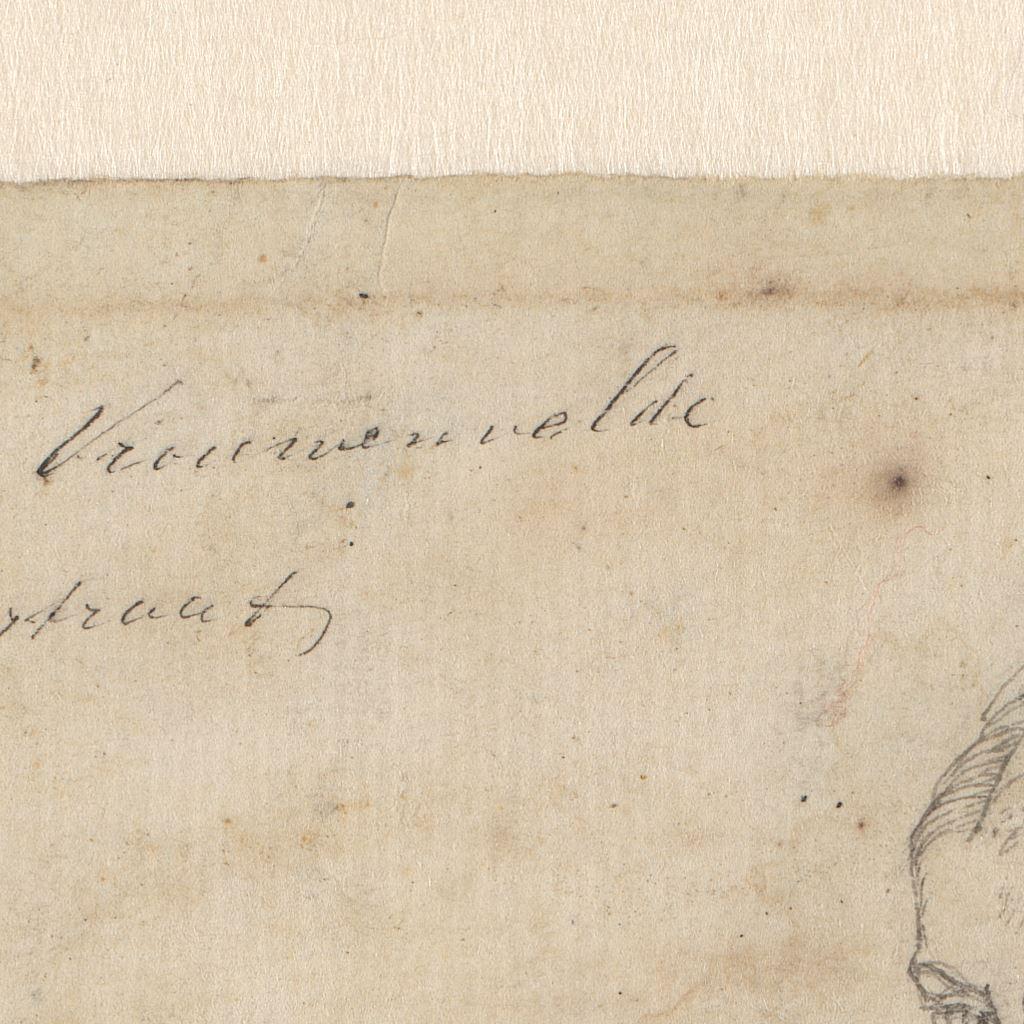 Vrouwenvelde
straat